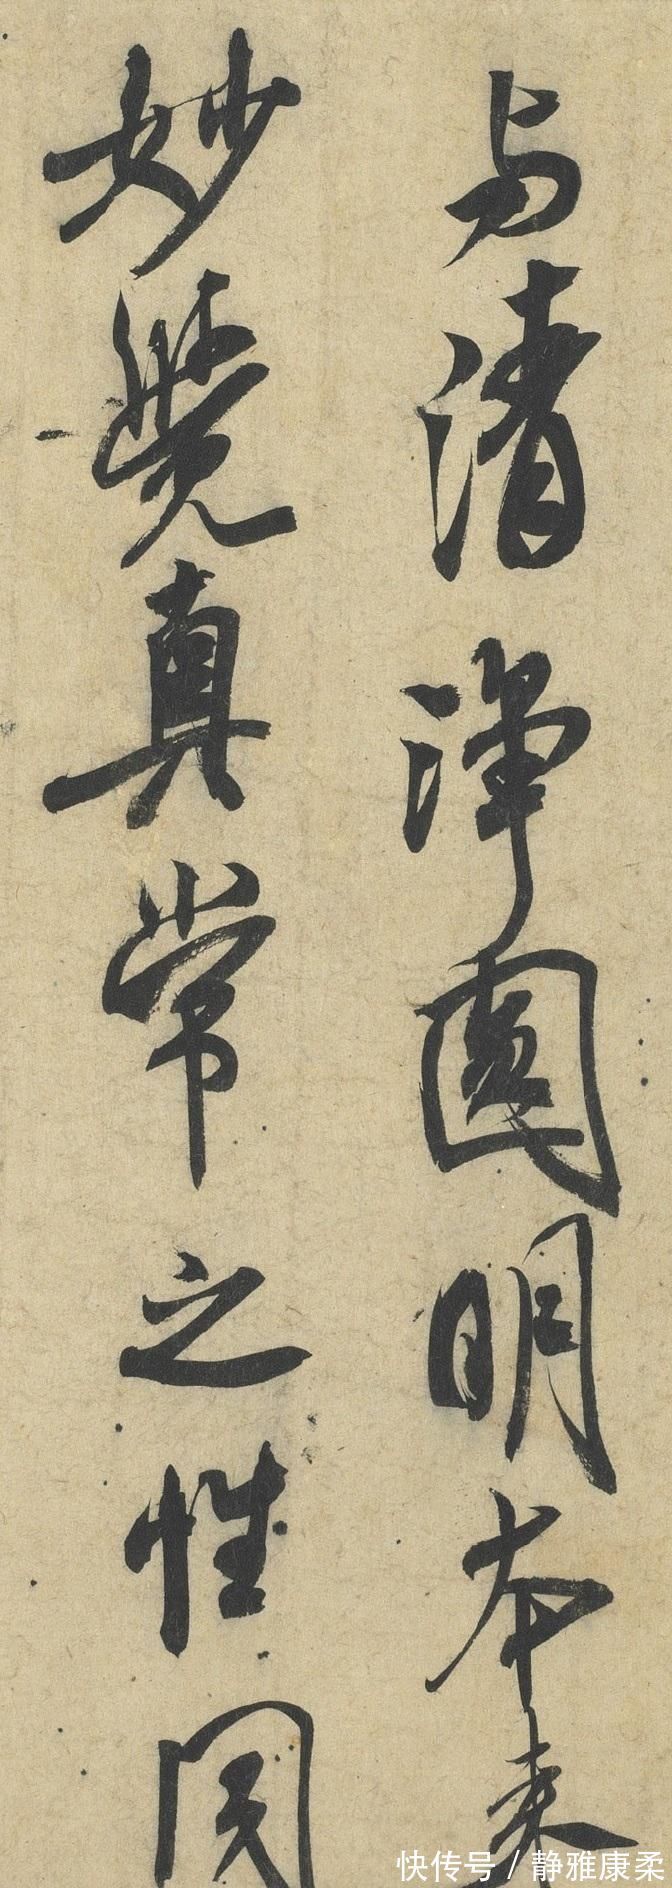 与清淨圓明本来
妙覺真常之性
快传号 / 静雅康柔